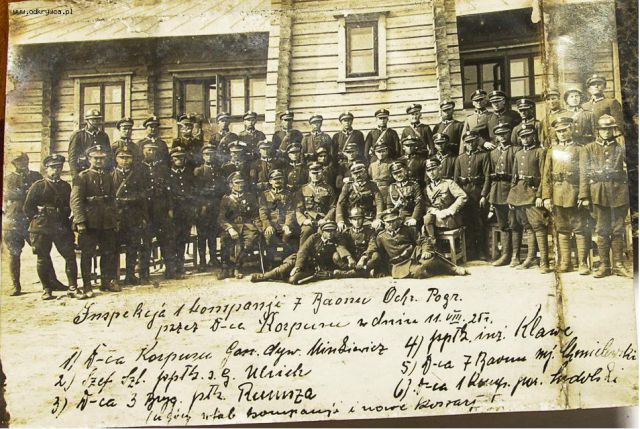 www.odkrywca.pl
Inspekcja 1 kompanji 7 Baonu Ochr. Pogr.
przez D-ca Korpusu w dniu 11.VIII.25r.
1) D-ca Korpusu Gen. dyw. Minkiewicz
2) Szef Szt. ppłk. s. G. Ulrich
3) D-ca 3 Bryg. płk.
4) ppłk. inż. Klawe
5) D-ca 7 Baonu mj.
6) D-ca 1 komp. por.
(u góry sztab kompanji i nowe koszary)